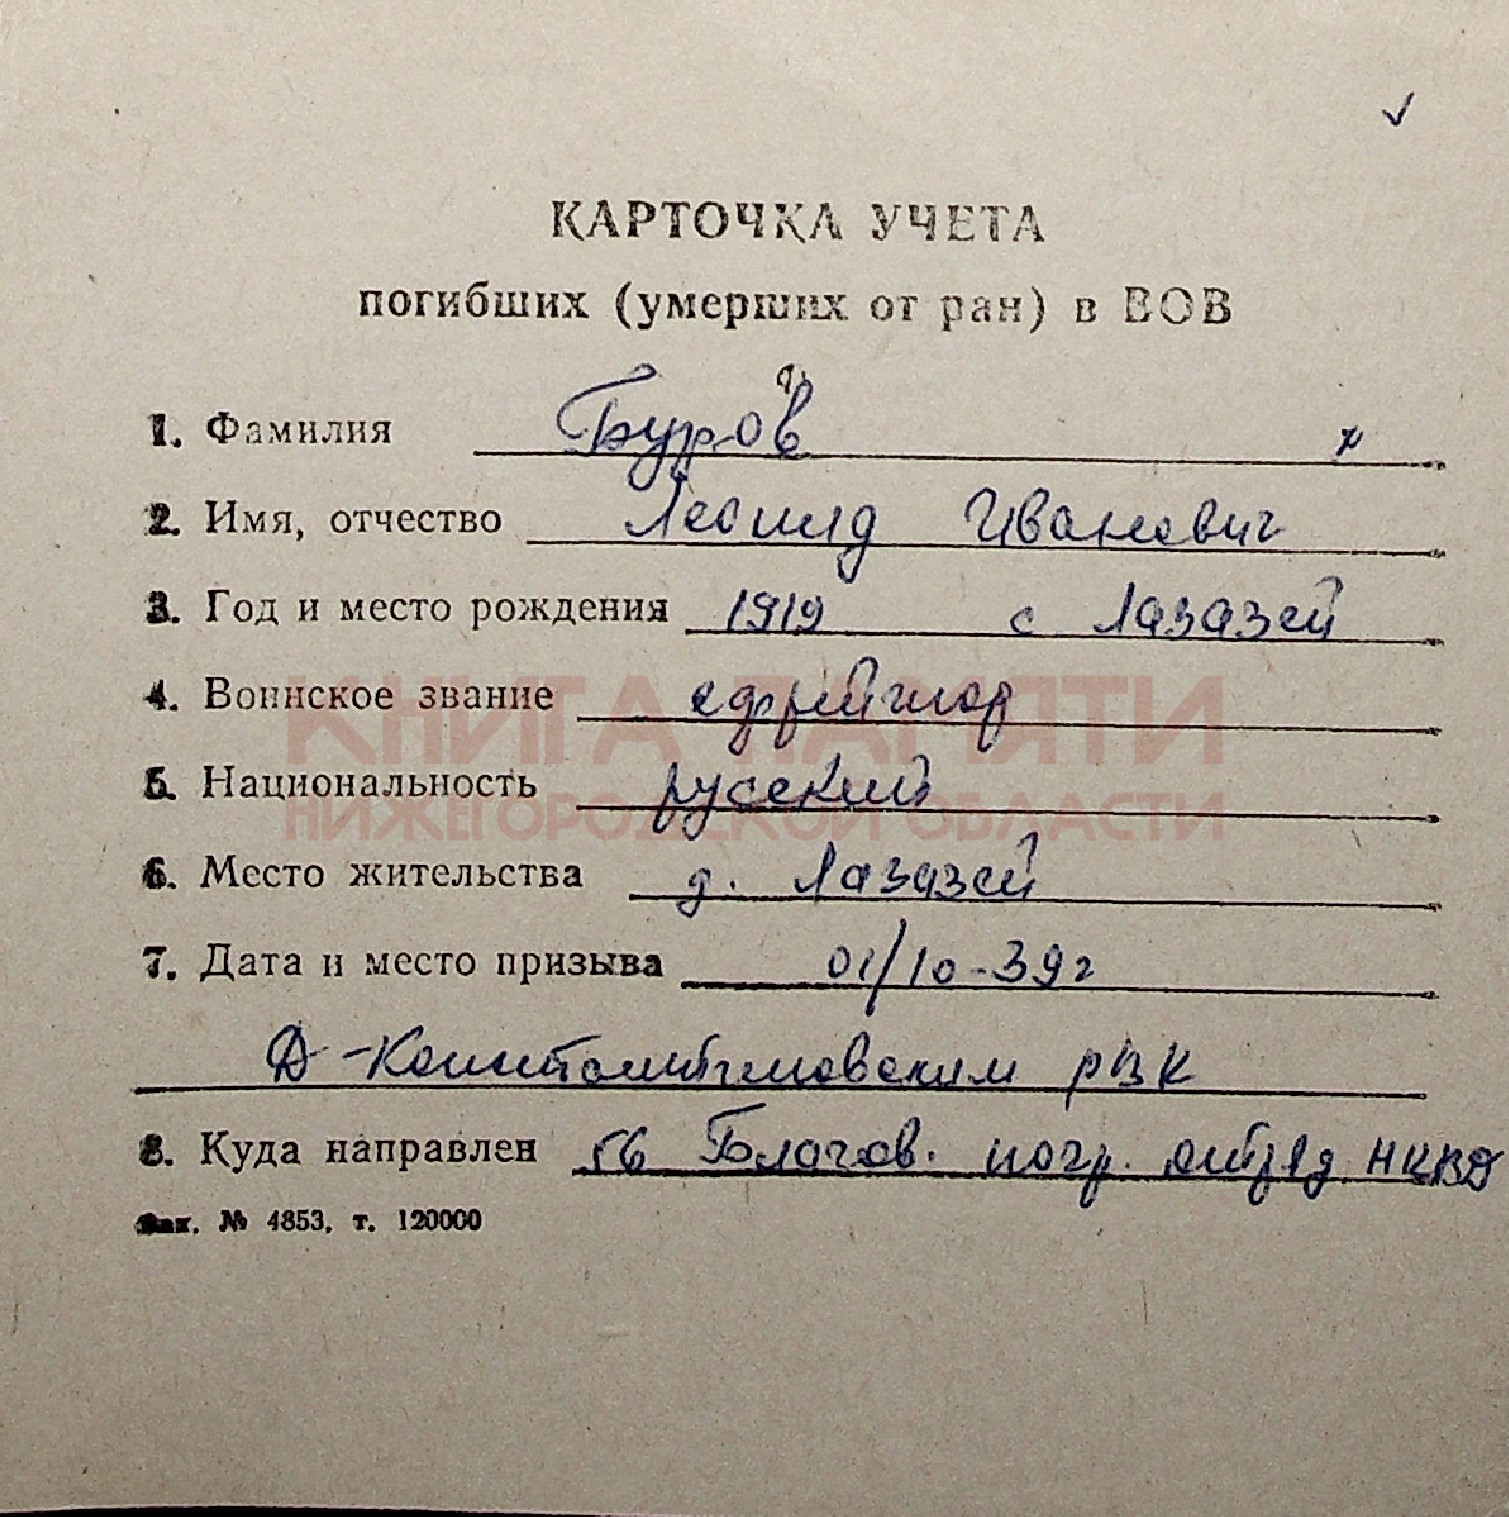 КАРТОЧКА УЧЕТА
погибших (умерших от ран) в ВОВ
1. Фамилия Буров
2. Имя, отчество Леонид Иванович
3. Год и место рождения 1919 с Лазазей
4. Воинское звание ефрейтор
КНИГА ПАМЯТИ
5. Национальность русский
НИЖЕГОРОДСКОЙ ОБЛАСТИ
6. Место жительства д. Лазазей
7. Дата и место призыва 01/10-39г
Д-Константиновским РВК
8. Куда направлен 56 Благов. погр. отряд НКВД
Зак. № 4853. т. 120000